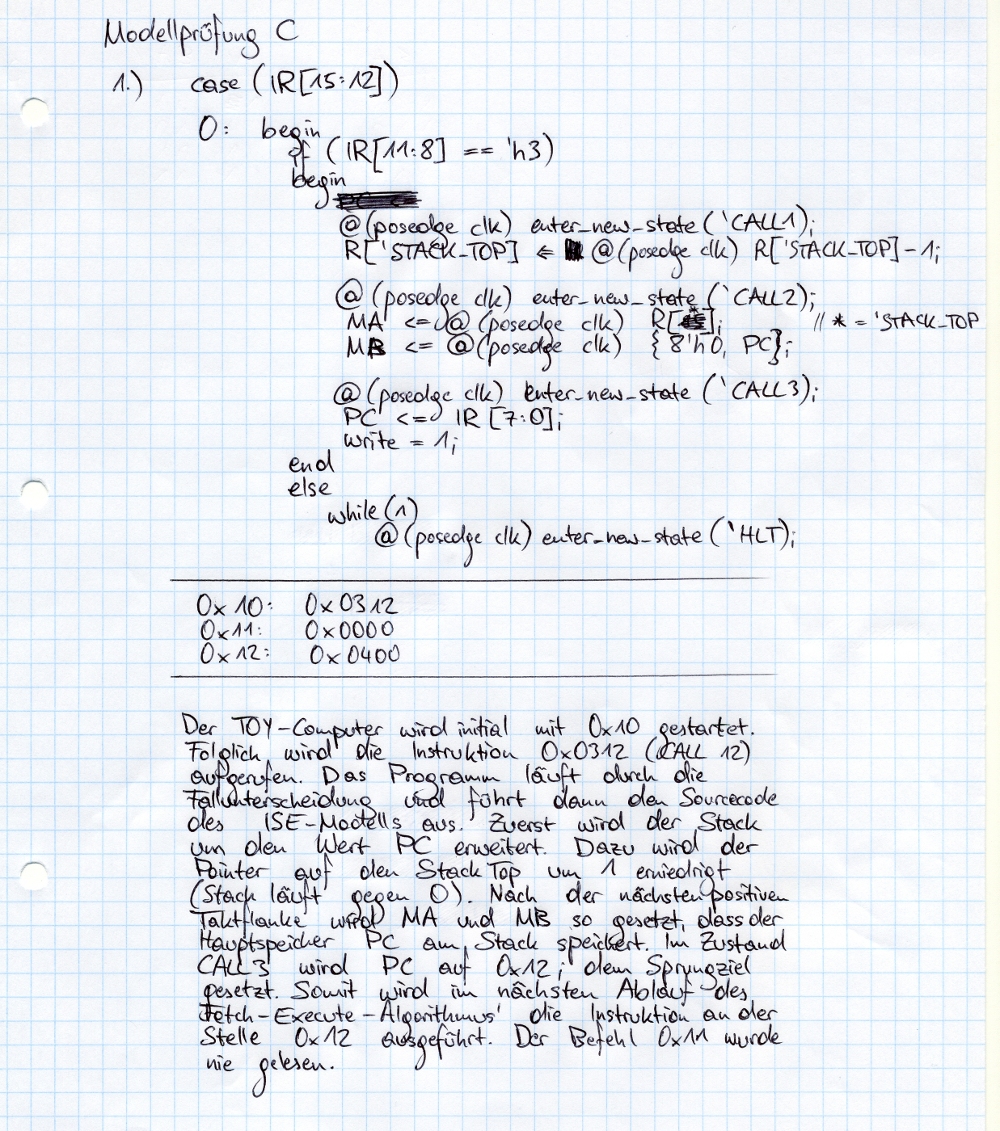 Modellprüfung C
1.) case (IR[15:12])
0: begin
if (IR[11:8] == 'h3)
begin
@(posedge clk) enter_new_state(`CALL1);
R['STACK_TOP] <= @(posedge clk) R['STACK_TOP]-1;
@(posedge clk) enter_new_state(`CALL2);
MA <= @(posedge clk) R[*]; // * = 'STACK_TOP
MB <= @(posedge clk) {8'h0, PC};
@(posedge clk) enter_new_state(`CALL3);
PC <= IR[7:0];
write = 1;
end
else
while(1)
@(posedge clk) enter_new_state(`HLT);
0x10: 0x0312
0x11: 0x0000
0x12: 0x0400
Der TOY-Computer wird initial mit 0x10 gestartet.
Folglich wird die Instruktion 0x0312 (CALL 12)
aufgerufen. Das Programm läuft durch die
Fallunterscheidung und führt dann den Sourcecode
des ISE-Modells aus. Zuerst wird der Stack
um den Wert PC erweitert. Dazu wird der
Pointer auf den Stack Top um 1 erniedrigt
(Stack läuft gegen 0). Nach der nächsten positiven
Taktflanke wird MA und MB so gesetzt, dass der
Hauptspeicher PC am Stack speichert. Im Zustand
CALL3 wird PC auf 0x12, dem Sprungziel
gesetzt. Somit wird im nächsten Ablauf des
'Fetch-Execute-Algorithmus' die Instruktion an der
Stelle 0x12 ausgeführt. Der Befehl 0x11 wurde
nie gelesen.